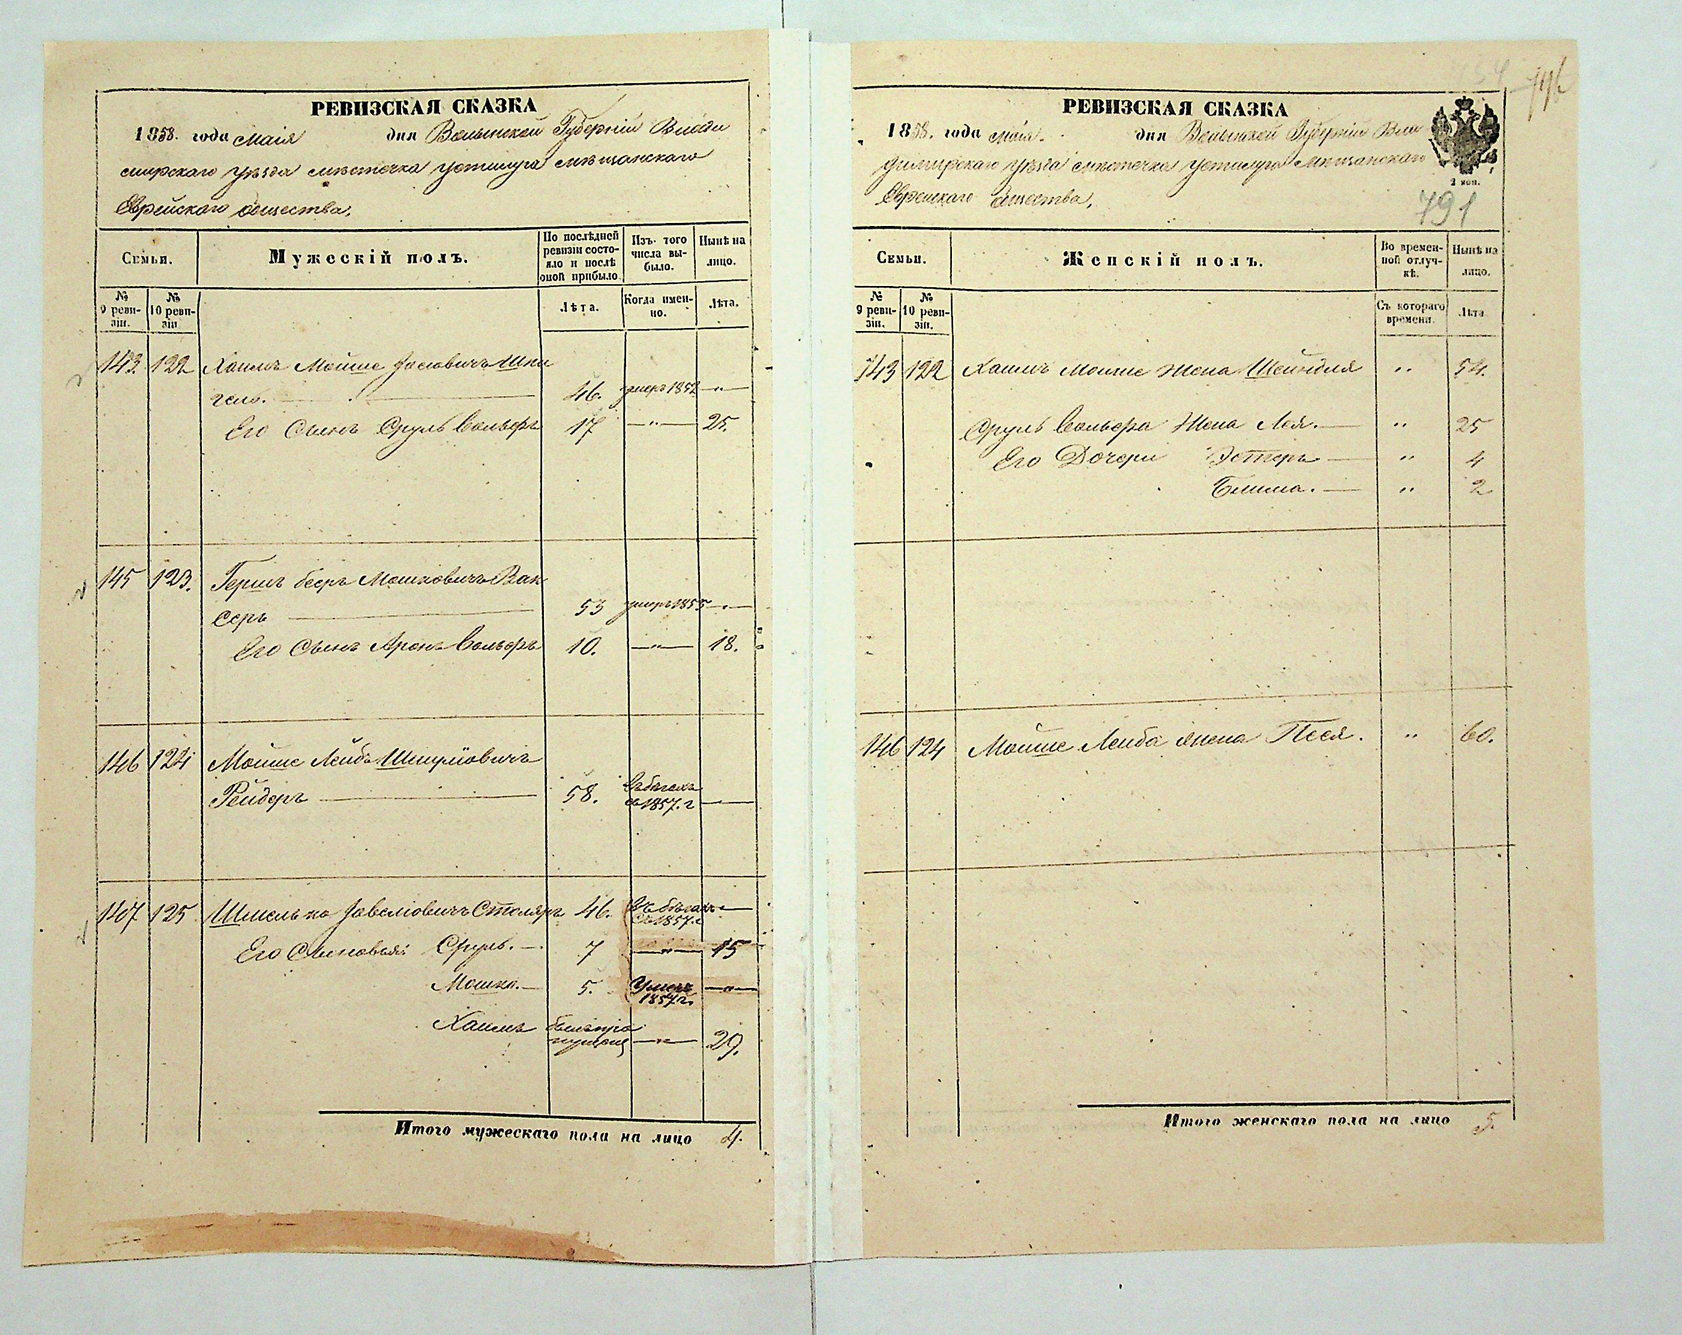 РЕВИЗСКАЯ СКАЗКА
1858. года маія дня Волынской Губерніи Влади
мирскаго уѣзда мѣстечка Устилуга мѣщанскаго
Еврейскаго общества.
Семьи.
Мужескій полъ.
По послѣдней ревизіи состояло и послѣ оной прибыло.
Изъ того числа выбыло.
Нынѣ на лицо.
№ 9 ревизіи.
№ 10 ревизіи.
Лѣта.
Когда именно.
Лѣта.
143 122 Хаимъ Мошие
46. умеръ 1852 — " —
Его Сынъ Сруль Вольфъ 17 — " — 25.
145 123. Гершъ Беръ Мошковичъ Вак
серъ 53 умеръ 1855 — " —
Его Сынъ Аронъ Вольфъ 10. — " — 18.
146 124 Мошие Лейба Шмулiовичъ
Рейдеръ 58. въ бѣгахъ съ 1857. г —
147 125 Шмелько Столяръ 46. Въ бѣгахъ съ 1857. г —
Его Сыновья: Сруль. — 7 — " — 15
Мошко. — 5. Умеръ 1857 г. — " —
Хаимъ — " — 29.
Итого мужескаго пола на лицо 4.
РЕВИЗСКАЯ СКАЗКА
1858. года маія. дня Волынской Губерніи Вла
димирскаго уѣзда мѣстечка Устилуга мѣщанскаго
Еврейскаго общества.
2 коп.
791
Семьи.
Женскій полъ.
Во временной отлучкѣ.
Нынѣ на лицо.
№ 9 ревизіи.
№ 10 ревизіи.
Съ котораго времени.
Лѣта
143 122 Хаимъ Мошие жена Шейндля " 54.
Сруль Вольфа жена Лея. — " 25
Его Дочери Эстеръ — " 4
Блима. — " 2
146 124 Мошие Лейба жена Песя. " 60.
Итого женскаго пола на лицо 5.